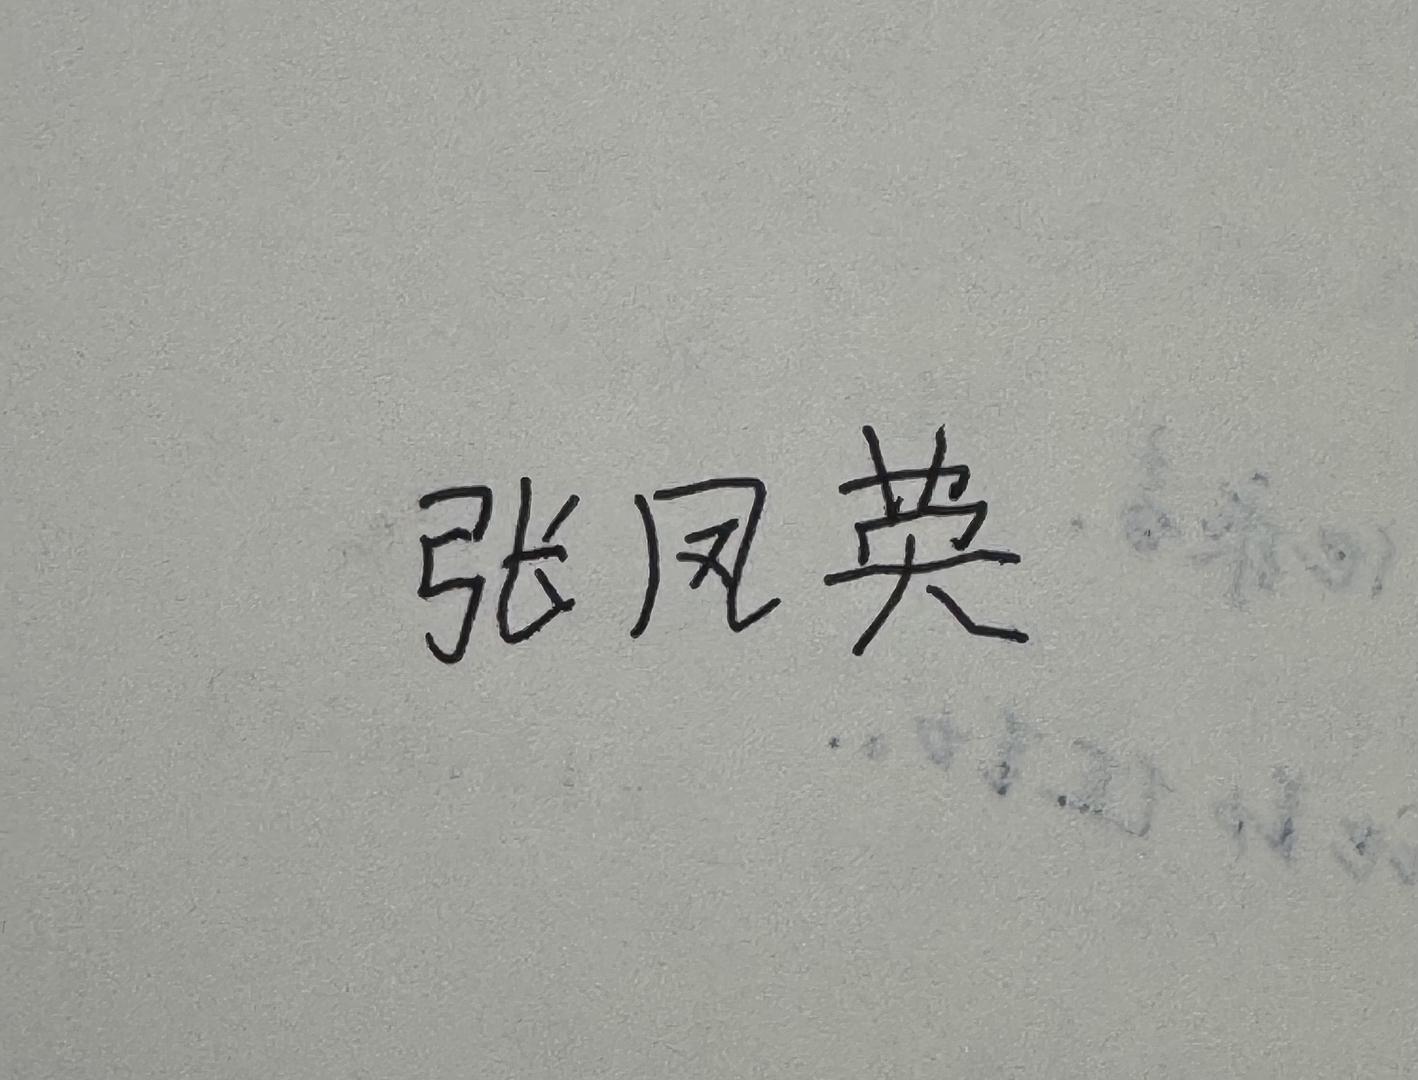 张凤英